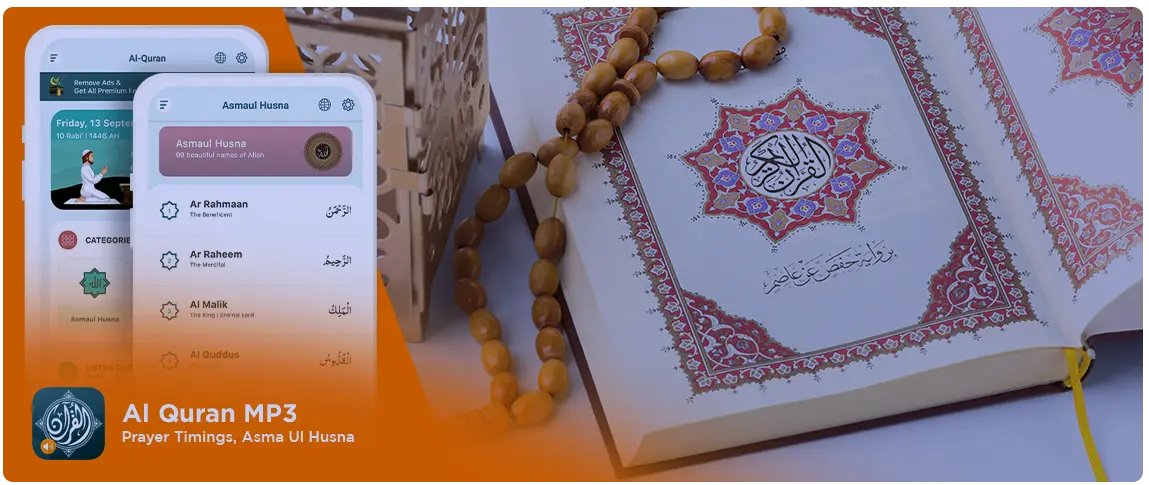 Al-Quran
Remove Ads &
Get All Premium Fe
Friday, 13 Septer
10 Rabi' I 1446 AH
CATEGORIE
Asmaul Husna
Asmaul Husna
Asmaul Husna
99 beautiful names of Allah
1
Ar Rahmaan
The Beneficent
الرَّحْمَنُ
2
Ar Raheem
The Merciful
الرَّحِيمُ
3
Al Malik
The King / Eternal Lord
الْمَلِكُ
Al Quddus
الْقُدُّوسُ
القرآن الكريم
برواية حفص عن عاصم
القرآن
Al Quran MP3
Prayer Timings, Asma Ul Husna